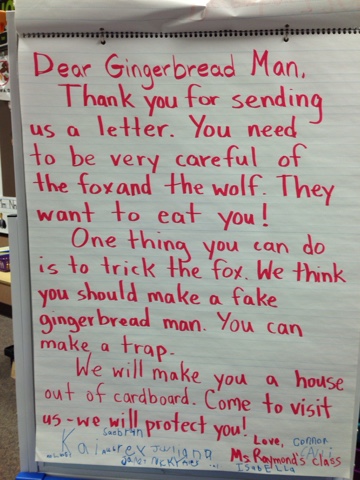 Dear Gingerbread Man,
Thank you for sending
us a letter. You need
to be very careful of
the fox and the wolf. They
want to eat you!
One thing you can do
is to trick the fox. We think
you should make a fake
gingerbread man. You can
make a trap.
We will make you a house
out of cardboard. Come to visit
us - we will protect you!
Love,
Connor
Ms. Raymond's class
Juliana
Isabella